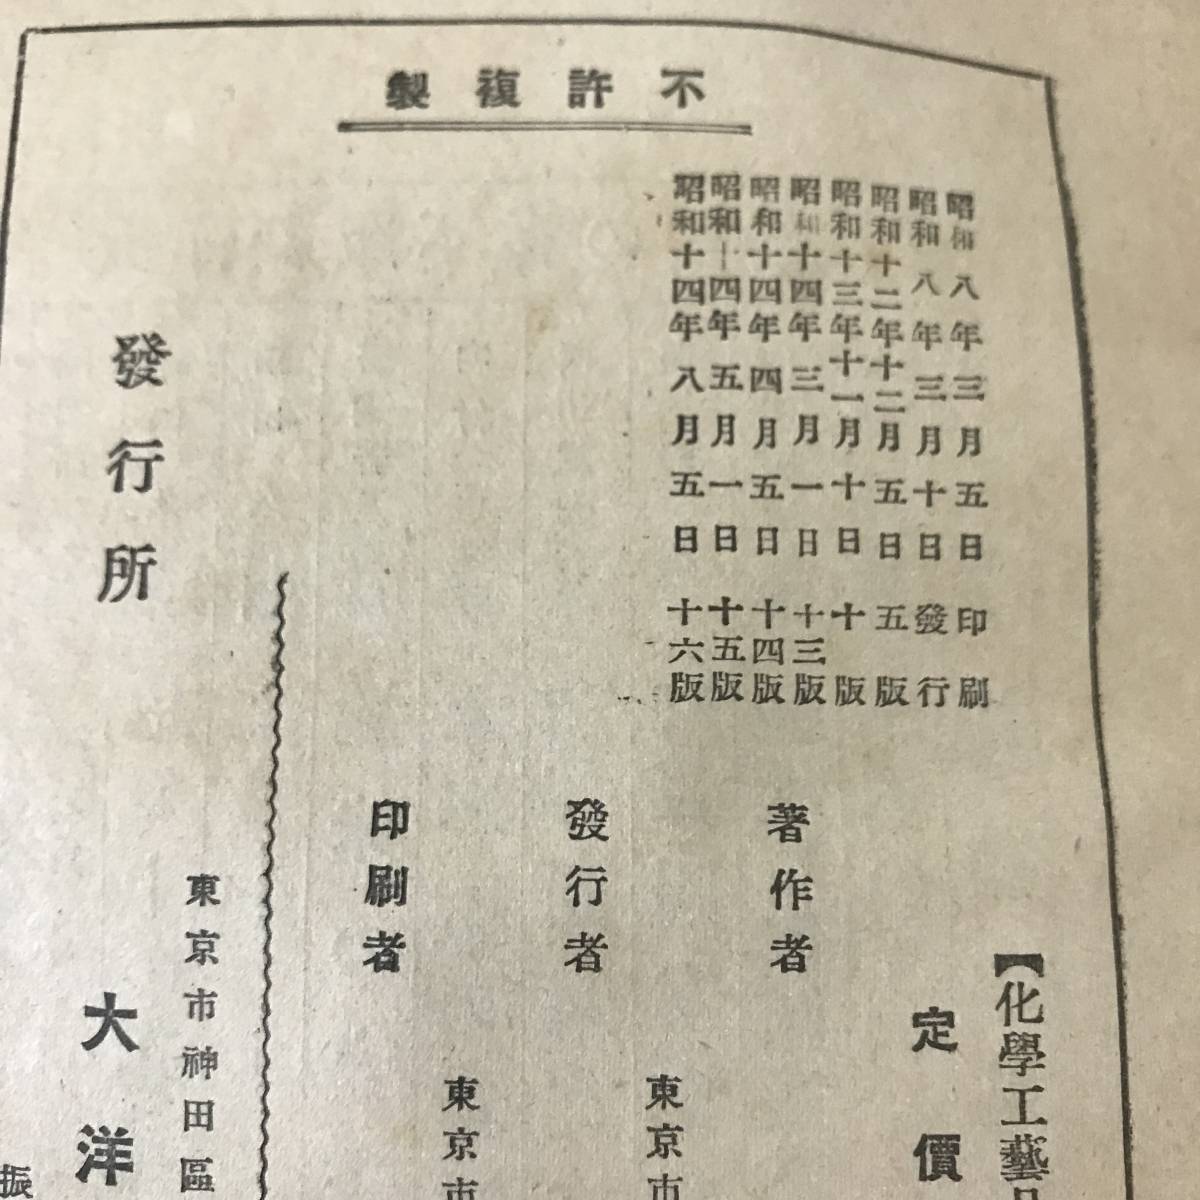 不許複製
昭和八年三月五日印刷
昭和八年三月十日發行
昭和十二年十二月五日五版
昭和十三年十一月十日十版
昭和十四年三月一日十三版
昭和十四年四月五日十四版
昭和十四年五月一日十五版
昭和十四年八月五日十六版
【化學工藝
定價
著作者
東京市
發行者
東京市
印刷者
東京市神田區
發行所
大洋
振